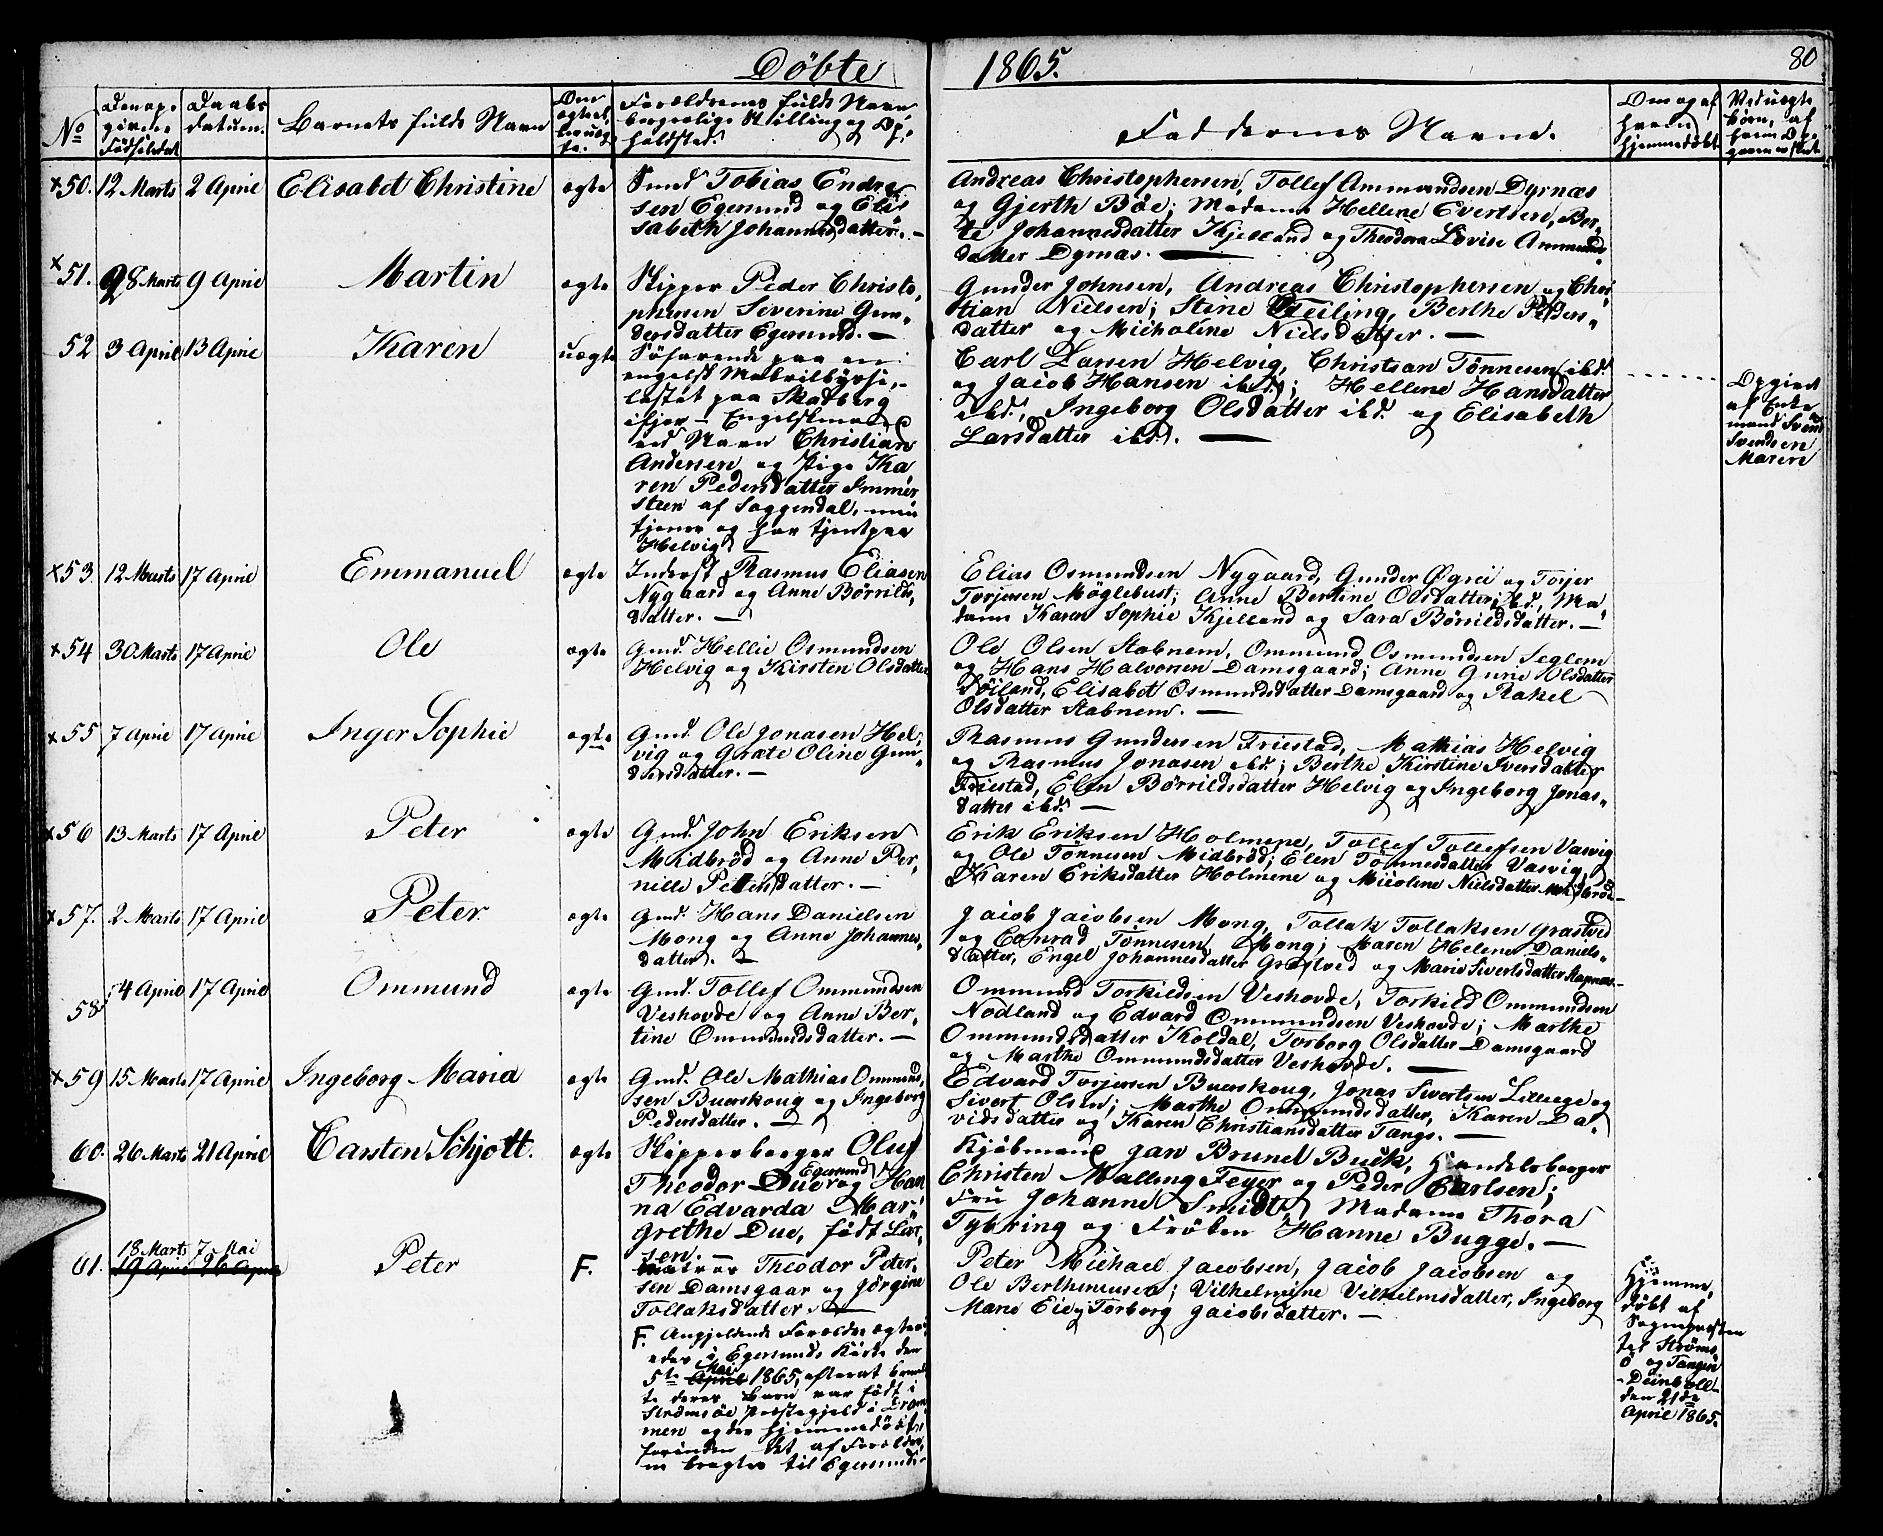 Døbte 1865. 80
No
Den opgivne Fødselsdat
Daabs datum.
Barnets fulde Navn
Om ægte el. uægte.
Forældrenes fulde Navn borgerlige Stilling og Opholdsted.
Faddernes Navne.
Om og af hvem hjemmedøbt
Ved uægte Børn, af hvem Opgaven er skeet
×50. 12 Marts 2 April Elisabet Christine ægte
Smed Tobias Endre
sen Egersund og Eli
sabeth Johannesdatter. —
Andreas Christophersen, Tollef Ammundsen Dyrnæs
og Gjerth Bøe; Madame Hellene Evertsen, Ber-
te Johannesdatter Kjelland og Theodora Lovise Ammunds
datter Dyrnæs. —
×51. 28 Marts 9 April Martin ægte
Skipper Peder Christo,
phersen Severine Gun-
dersdatter Egersund. —
Gunder Johnsen, Andreas Christophersen og Chri
stian Nielsen; Stine Feiling, Berthe Peders-
datter og Micholine Nielsdatter. —
52 3 April 13 April Karen uægte
Søfarende paa en
engelsk
paa Skadberg
Engelskmand
ved Navn Christian
Andersen og Pige Ka
ren Pedersdatter Immer
steen af Soggendal,
tjener og har tjent paa
Helvig
Carl Larsen Helvig, Christian Tønnesen ibd.
og Jacob Hansen ibd.; Hellene Hansdatter
ibd., Ingeborg Olsdatter ibd. og Elisabeth
Larsdatter ibd. —
Opgivet
af Enke
mand Svend
Svendsen
Maren
×53. 12 Marts 17 April Emmanuel ægte
Inderst Rasmus Eliasen
Nygaard og Anne Børrilds,
datter. —
Elias Osmundsen Nygaard, Gunder Øgrei og Torjer
Torjersen Møglebust; Anne Bertine Olsdatter ibd., Ma-
dame Karen Sophie Kjelland og Sara Børrildsdatter. —
×54 30 Marts 17 April Ole ægte
Gmd. Hellie Osmundsen
Helvig og Kirsten Olsdatter
Ole Olsen Stabnem, Ommund Osmundsen Seglem
og Hans Halvorsen Damsgaard; Anne Gurie Olsdatter
Søiland, Elisabet Osmundsdatter Damsgaard og Rakel
Olsdatter Stabnem. —
×55 7 April 17 April Inger Sophie ægte
Gmd. Ole Jonasen Hel,
vig og Græte Oline Gun-
dersdatter. —
Rasmus Gundersen Friestad, Mathias Helvig
og Rasmus Jonasen ibd.; Berthe Kirstine Iversdatter
Friestad, Elen Børrildsdatter Helvig og Ingeborg Jonas-
datter ibd. —
×56 13 Marts 17 April Peter ægte
Gmd. John Eriksen
Midbrød og Anne Per-
nille Petersdatter. —
Erik Eriksen Holmene, Tollef Tollefsen Vasvig
og Ole Tønnesen Midbrød; Elen Tønnesdatter Vasvig,
Karen Eriksdatter Holmene og Micoline Nielsdatter Midbrød —
×57. 2 Marts 17 April Peter. ægte
Gmd. Hans Danielsen
Mong og Anne Johannes,
datter. —
Jacob Jacobsen Mong, Tollak Tollaksen Grastved
og Conrad Tønnesen Mong; Maren Helene Daniels-
datter, Engel Johannesdatter Grastved og Marie Sivertsdatter —
58 4 April 17 April Ommund ægte
Gmd. Tollef Ommundsen
Veshovde og Anne Ber-
tine Ommundsdatter. —
Ommund Torkildsen Veshovde, Torkild Ommundsen
Nodland og Edvard Ommundsen Veshovde; Marthe
Ommundsdatter Koldal, Torborg Olsdatter Damsgaard
og Marthe Ommundsdatter Veshovde. —
×59 15 Marts 17 April Ingeborg Maria ægte
Gmd. Ole Mathias Ommund,
sen Buerskoug og Ingeborg
Pedersdatter. —
Edvard Torjersen Buerskoug, Jonas Sivertsen Lillege og
Sivert Olsen; Marthe Ommundsdatter, Karen Da-
vidsdatter og Karen Christiansdatter Tangs. —
60. 26 Marts 21 April Carsten Schjøtt. ægte
Skipperborger Oluf
Theodor Due Egersund og Han
na Edvarda Mar-
grethe Due, født Lar
sen. —
Kjøbmand Jan Brunel Buck, Handelsborger
Christen Malling Feyer og Peder Carlsen;
Fru Johanne Smidt, Madame Thora
Tybring og Frøken Hanne Bugge. —
61. 18 Marts 7 Mai Peter F.
19 April 26 April
Theodor Peter-
sen Damsgaar og Jørgine
Tollaksdatter. —
Peter Michael Jacobsen, Jacob Jacobsen og
Ole Berthineusen; Vilhelmine Vilhelmsdatter, Ingeborg
Marie Eie, Torborg Jacobsdatter. —
F. Angjeldende Forældre ægtevi-
edes i Egersunds Kirke den
5te April Mai 1865, efterat
deres Barn var født i
Strømsøe Præstegjeld i Dram
men og der hjemmedøbt,
forinden det af Forældre
ne bragtes til Egersund. —
Hjemme,
døbt af
Sognepræsten
til Strøms-
ø og Tangen
Deinboll
den 21de
April 1865.